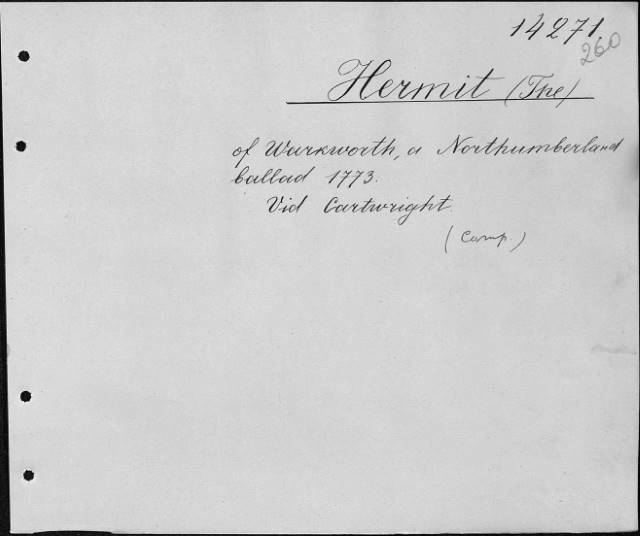 14271.
260
Hermit (The)
of Warkworth, a Northumberland
ballad 1773.
Vid Cartwright.
(Camp.)